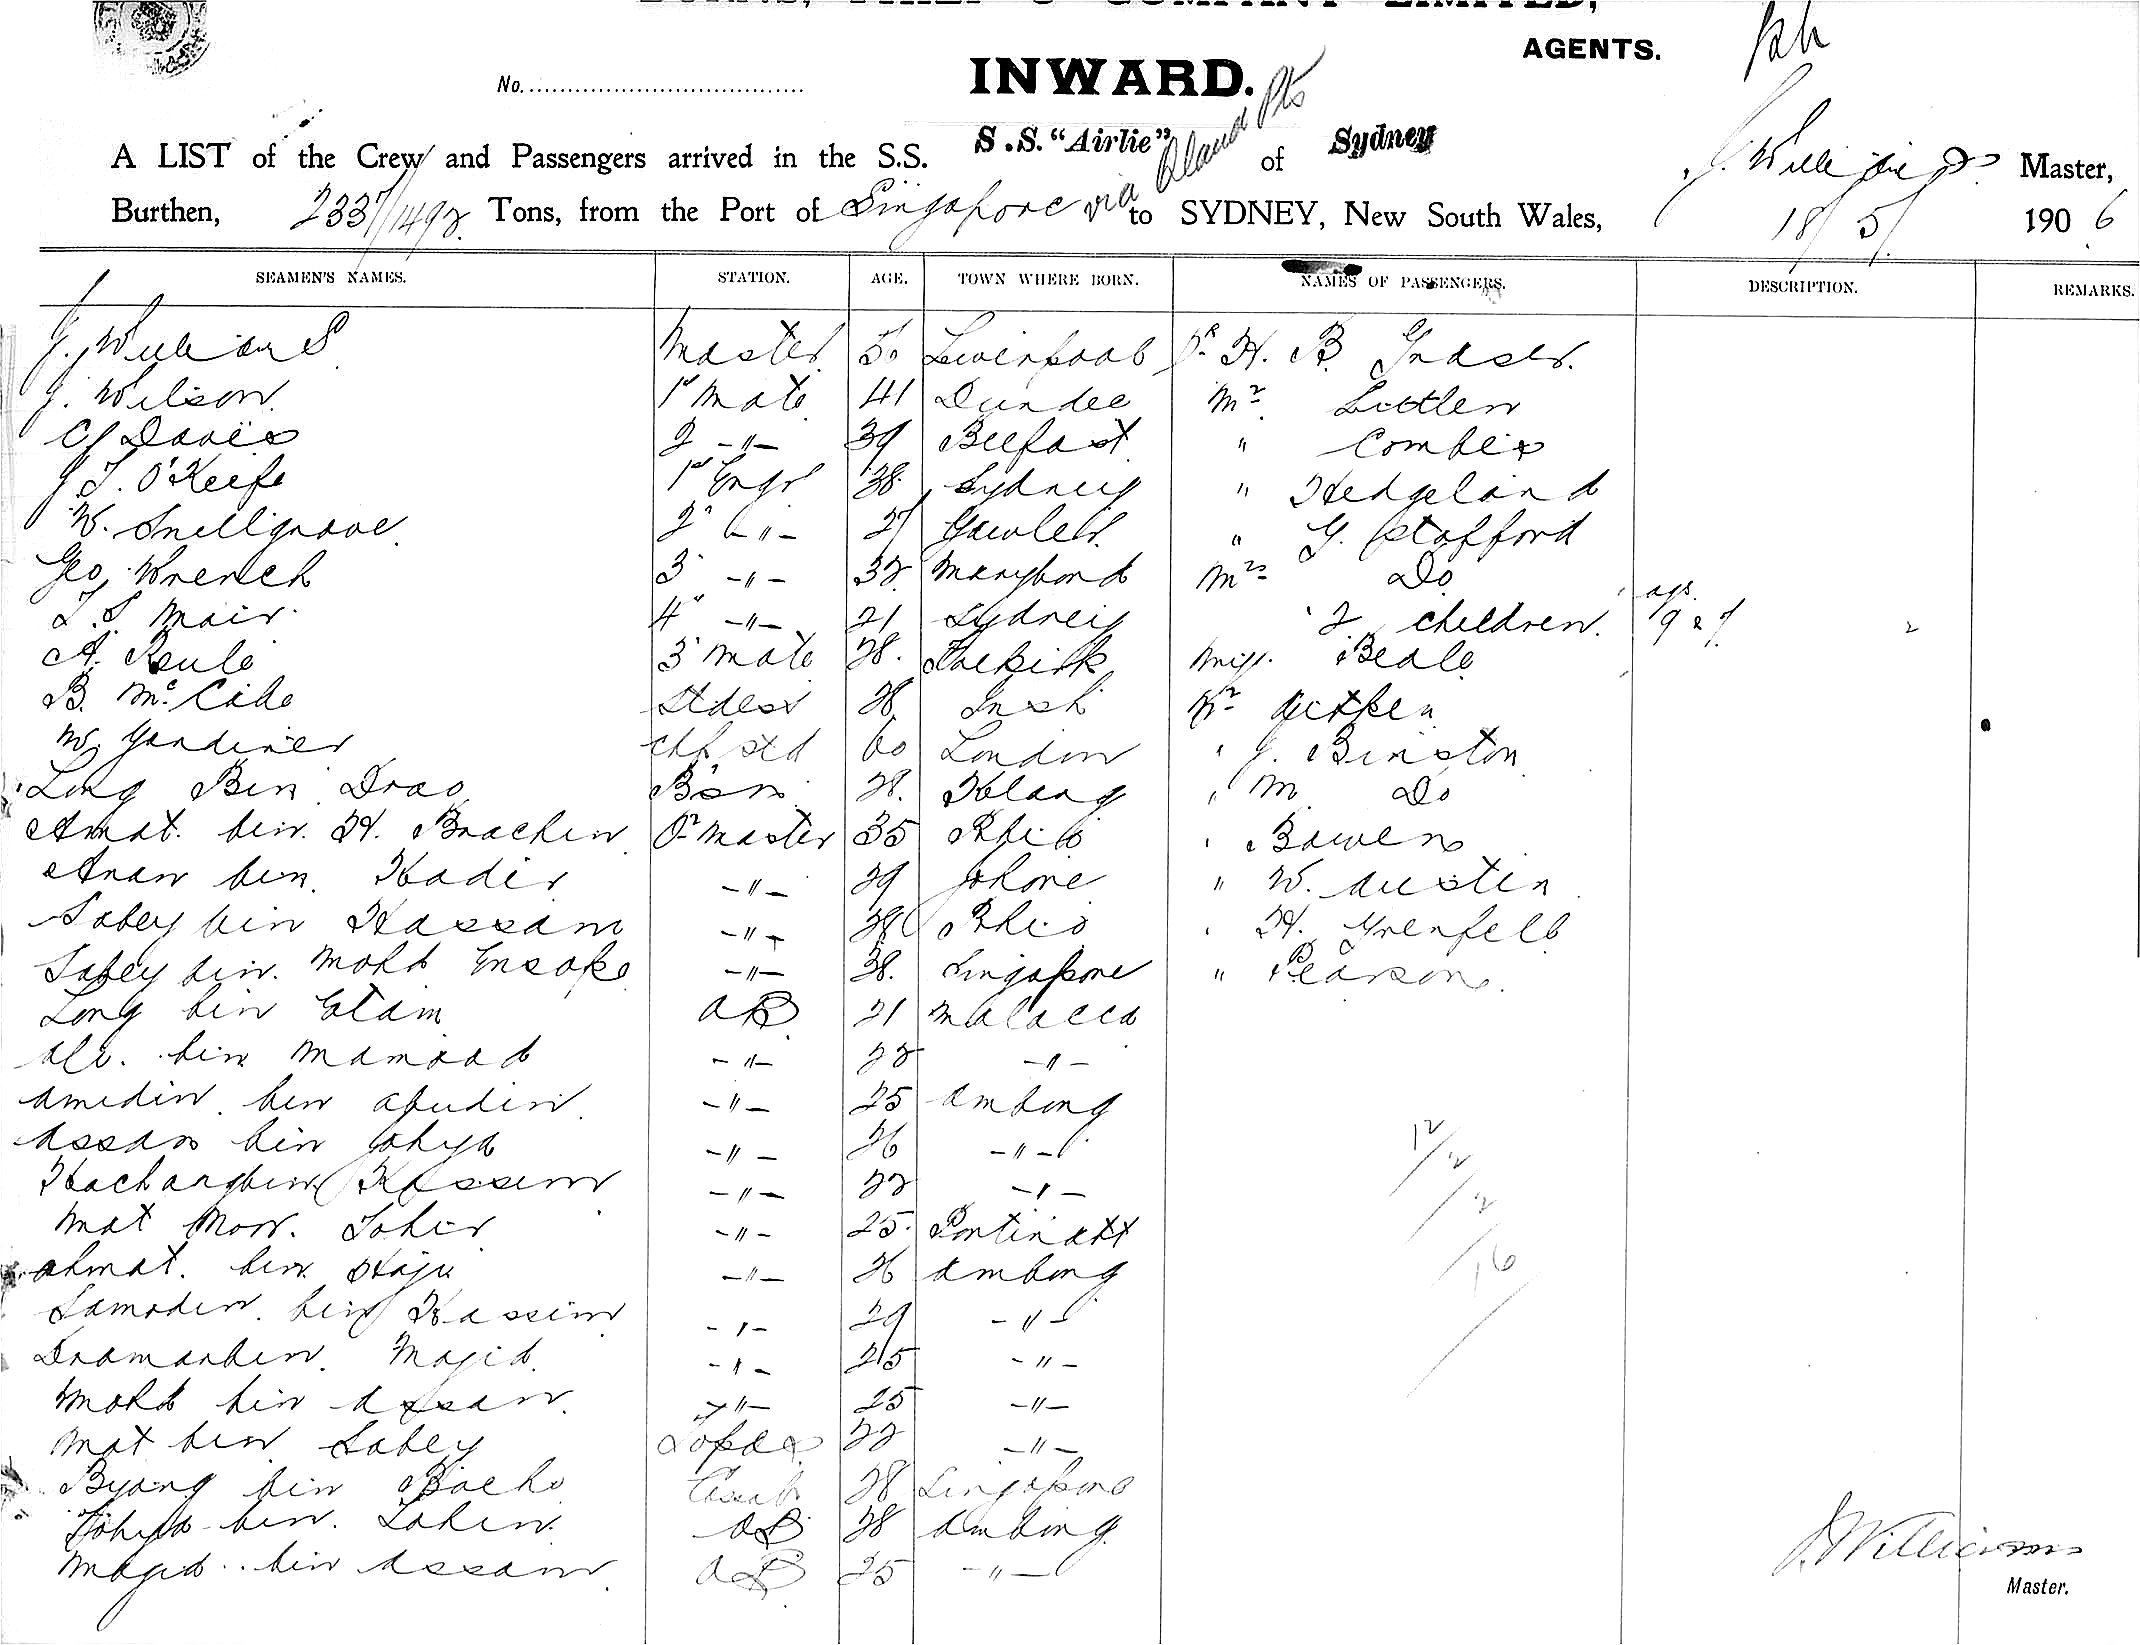 BURNS, PHILP & COMPANY LIMITED,
AGENTS.
No.
INWARD.
A LIST of the Crew and Passengers arrived in the S.S. S.S. "Airlie" of Sydney J. Williams Master,
Burthen, 2337/1492 Tons, from the Port of Singapore via Island Pts to SYDNEY, New South Wales, 18/5/ 1906
SEAMEN'S NAMES. STATION. AGE. TOWN WHERE BORN. NAMES OF PASSENGERS. DESCRIPTION. REMARKS.
J. Williams Master Liverpool Dr H. B. Fraser.
J. Wilson. 1st Mate 41 Dundee Mr. Littler
C J Davis 2 -"- 39 Belfast " Combes
J. T. O'Keefe 1st Engr 38 Sydney " Hedgeland
W. Snellgrove 2d -"- Gawler. " G. Stafford
Geo. Wrench 3 -"- 32 Marybond Mrs Do
T. S Mair 4" -"- 21 Sydney 2 children. ags. 9 & 7 2
A. 3d Mate 28. Miss. Beale
B. McCabe Stdess 28 Insh Mr Aitken
W. Gardiner chf std 60 London " J. Binston
Long Bin Drao Bosn 28. Klang " M Do
Amat. bin. H. Brachin Qr Master 35 Rhio " Bowen
Anaw bin. Kadir -"- 29 Johore " W. Austin
Sabey bin Hassan -"- 28 Rhio " H. Grenfell
Sabey bin. Mohd Ensope -"- 38. Singapore " Pearson.
Long bin Etam AB 21 Malacca
Ali. bin Mamood -"- 22 -"-
Amidin bin Apudin -"- 25 Ambong
Assan bin Johya -"- 26 -"-
Kachangbin Kassim -"- 22 -"-
Mat Noor. Tahir -"- 25. Pontinatt
Ahmat. bin Haji -"- 26 Ambong
Samodin. bin Kassim -"- 29 -"-
Dramanbin. Magid. -"- 25 -"-
Mohd bin Assan. -"- 25 -"-
Mat bin Sabey Topas 22 -"-
Byong bin Bocho Cassab 28 Singapore
Johya bin. Tahir. AB 28 Ambong.
Magid bin Assan. AB 25 -"-
12/2
/2
/16
J Williams
Master.